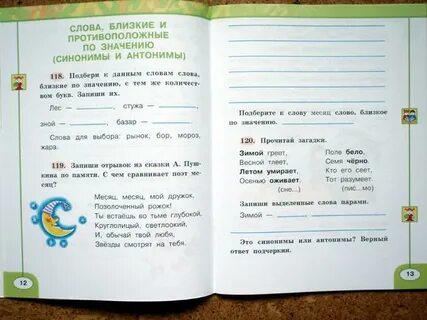 СЛОВА, БЛИЗКИЕ И
ПРОТИВОПОЛОЖНЫЕ
ПО ЗНАЧЕНИЮ
(СИНОНИМЫ И АНТОНИМЫ)
118. Подбери к данным словам слова,
близкие по значению, с тем же количест-
вом букв. Запиши их.
Лес — , стужа — ,
зной — , базар — .
Слова для выбора: рынок, бор, мороз,
жара.
119. Запиши отрывок из сказки А. Пуш-
кина по памяти. С чем сравнивает поэт ме-
сяц?
Месяц, месяц, мой дружок,
Позолоченный рожок!
Ты встаёшь во тьме глубокой,
Круглолицый, светлоокий,
И, обычай твой любя,
Звёзды смотрят на тебя.
12
Подберите к слову месяц слово, близкое
по значению.
120. Прочитай загадки.
Зимой греет,
Весной тлеет,
Летом умирает,
Осенью оживает.
(сне...)
Поле бело,
Семя чёрно.
Кто его сеет,
Тот разумеет.
(пис...мо)
Запиши выделенные слова парами.
Зимой —
Это синонимы или антонимы? Верный
ответ подчеркни.
13